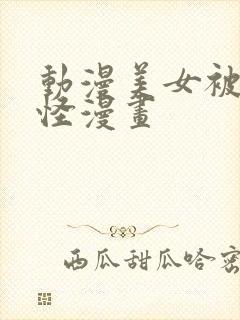 動漫美女被
怪漫畫
西瓜甜瓜哈密